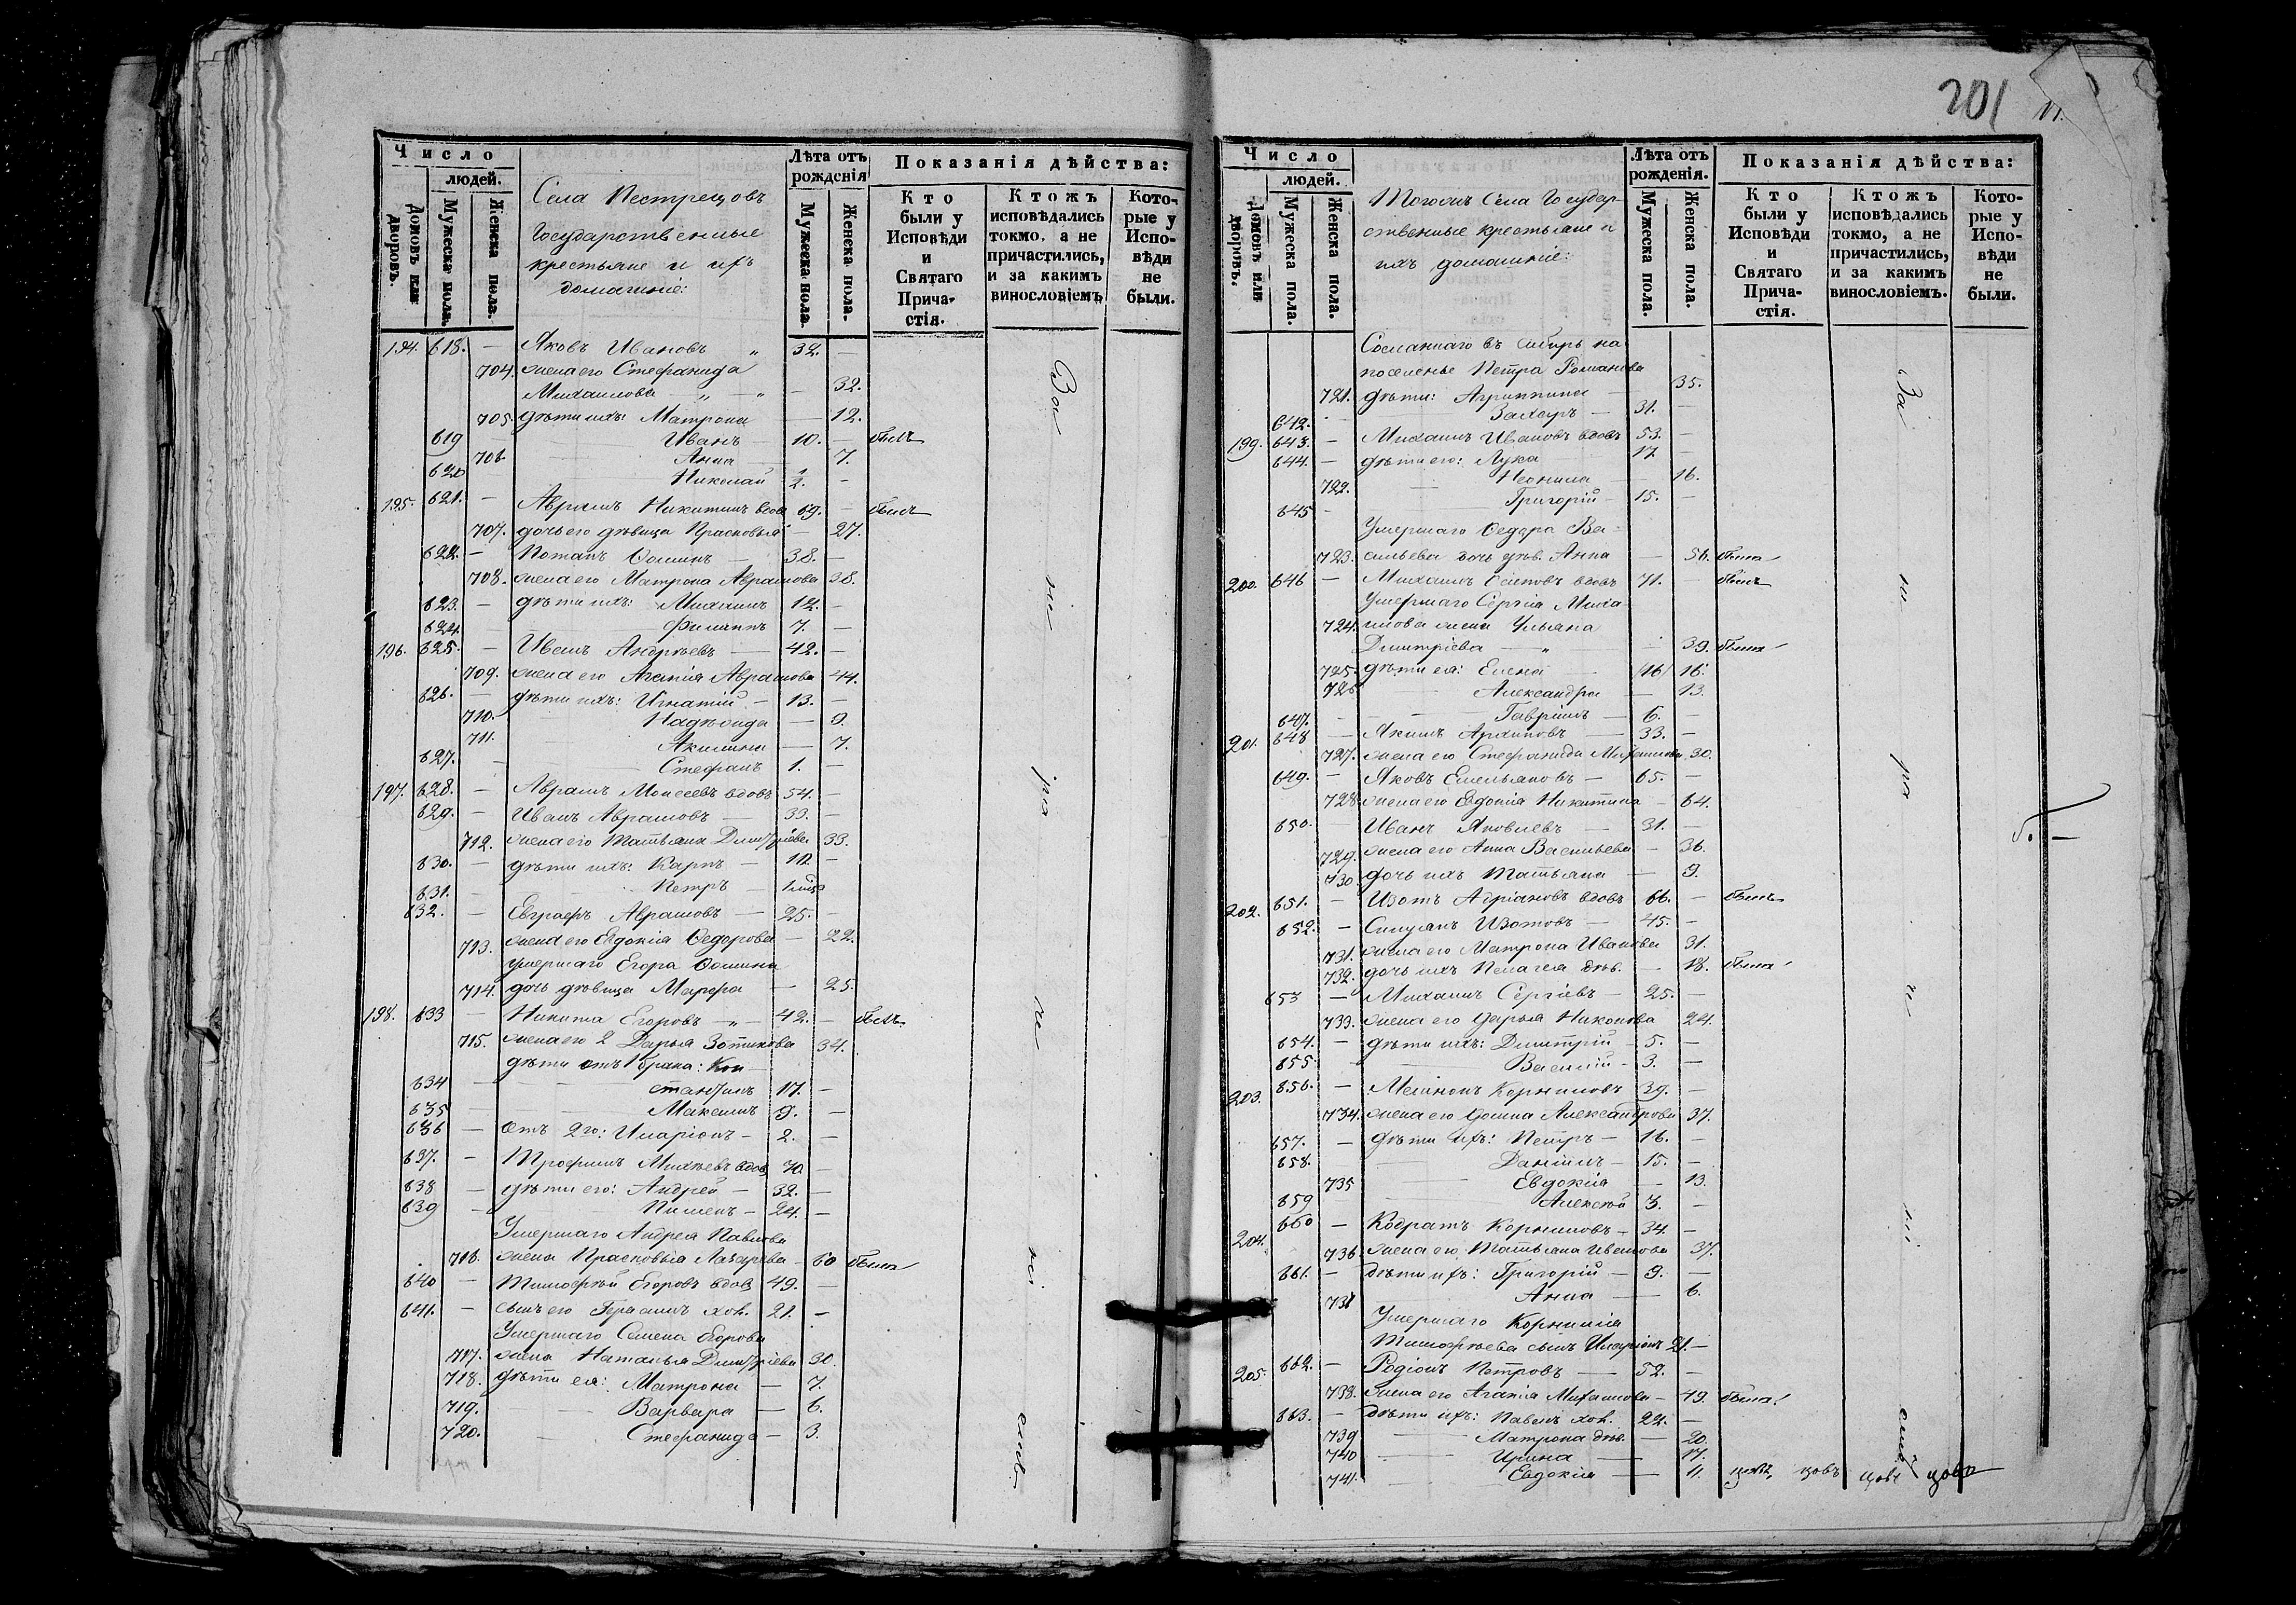 201
Число
людей.
Домовъ или дворовъ.
Мужеска пола.
Женска пола.
Села Пестрецовъ
Государственные
крестьяне и ихъ
домашние:
Лѣта отъ рожденія
Мужеска пола.
Женска пола.
Показанія дѣйства:
Кто были у Исповѣди и Святаго Причастія.
Ктожъ исповѣдались токмо, а не причастились, и за какимъ винословіемъ
Которые у Исповѣди не были.
194. 618. — Яковъ Ивановъ „ 32. —
704. жена его Стефанида
Михаилова — „ — „ — 32.
705. дѣти ихъ: Матрона — 12.
619 — Иванъ — 10. — былъ
706. — Анна — 7.
620 Николай 2. —
195. 621. — Аврамъ Никитинъ вдов 69. — былъ
707. дочь его дѣвица Прасковья — 27.
622. — Потапъ Ѳоминъ — 38. —
708. жена его Матрона Аврамова 38.
623. — дѣти ихъ: Михаилъ 12. —
624. — Филиппъ 7. —
196. 625. — Иванъ Андреевъ — 42. —
709. жена его Агапія Аврамова 44.
626. — дѣти ихъ: Игнатій — 13. —
710. Надежда — 9.
711. Акилина — 7.
627. — Стефанъ 1. —
197. 628. — Аврамъ Моисеевъ вдовъ 54. —
629. — Иванъ Аврамовъ — 33. —
712. жена его Татьяна Дмитріева 33.
630. — дѣти ихъ: Карпъ — 12. —
631. — Петръ —
632. — Евграфъ Аврамовъ — 25. —
713. жена его Евдокія Ѳедорова — 22.
умершаго Егора Ѳомина
714. дочь дѣвица Марфа — 25.
198. 633 — Никита Егоровъ — „ — 42. — былъ
715. жена его 2 Дарья Зотикова 34.
дѣти отъ 1 брака: Кон-
634 — стантинъ 17. —
635 — Максимъ 9. —
636 — отъ 2го: Иларіонъ — 2. —
637. — Трофимъ Михеевъ вдов 70. —
638 — дѣти его: Андрей — 32. —
639 — Пименъ — 24. —
Умершаго Андрея Павлова
716. жена Прасковья Лазарева — 60 была
640 — Тимофей Егоровъ вдов 49. —
641. — сынъ его Герасимъ хол. 21. —
Умершаго Семена Егорова
717. жена Наталья Дмитріева 30.
718. дѣти ея: Матрона — 7.
719. — Варвара — 6.
720. — Стефанида — 3.
Число
людей.
Домовъ или дворовъ.
Мужеска пола.
Женска пола.
Тогожъ Села Государ-
ственные крестьяне и
ихъ домашніе:
Лѣта отъ рожденія.
Мужеска пола.
Женска пола.
Показанія дѣйства:
Кто были у Исповѣди и Святаго Причастія.
Ктожъ исповѣдались токмо, а не причастились, и за какимъ винословіемъ.
Которые у Исповѣди не были.
Сосланнаго въ Сибирь на
поселенье Петра Романова
721. дѣти: Агриппина — 35.
642. Захаръ — 31. —
199. 643. — Михаилъ Ивановъ вдовъ 53. —
644. — дѣти его: Лука — 17. —
722. Неонила — 16.
645 — Григорій — 15. —
Умершаго Ѳедора Ва-
723. сильева дочь дѣв. Анна — 56. была
200. 646 — Михаилъ Осиповъ вдовъ 71. — былъ
Умершаго Сергія Миха-
724. илова жена Ульяна
Дмитріева — „ — 39. была
725. дѣти ея: Елена — 16/ 16.
726 Александра — 13.
647. — Гавріилъ — 6. —
201. 648 — Якимъ Архиповъ — 33. —
727. жена его Стефанида Михаилова 30.
649. — Яковъ Емельяновъ — 65. —
728 жена его Евдокія Никитина — 64.
650. — Иванъ Яковлевъ — 31. —
729. жена его Анна Васильева — 36.
730. дочь ихъ Татьяна — 9.
202. 651. — Изотъ Адріановъ вдовъ 66. — былъ
652. — Силуанъ Изотовъ — 45. —
731. жена его Матрона Иванова 31.
732. дочь ихъ Пелагея дѣв. — 18. была
653 — Михаилъ Сергіевъ — 25. —
733. жена его Дарья Никонова 24.
654. — дѣти ихъ: Дмитрій — 5. —
655 Василій — 3. —
203. 656. — Корниловъ 39. —
734. жена его Домна Александрова 37.
657. — дѣти ихъ: Петръ — 16. —
658. Даніилъ — 15. —
735 Евдокія — 13.
659 Алексѣй 3. —
204. 660 — Кодратъ Корниловъ — 34. —
736. жена его Татьяна Иванова 37.
661. — дѣти ихъ: Григорій — 9. —
737 Анна — 6.
Умершаго Корнилія
Тимофѣева сынъ Иларіонъ 21. —
205. 662. — Родіонъ Петровъ — 52. —
738. жена его Агапія Михаилова — 49. была
663. — дѣти ихъ: Павелъ хол. 22. —
739 Матрона дѣв. — 20.
740 Ирина — 17.
741. Евдокія — 11.